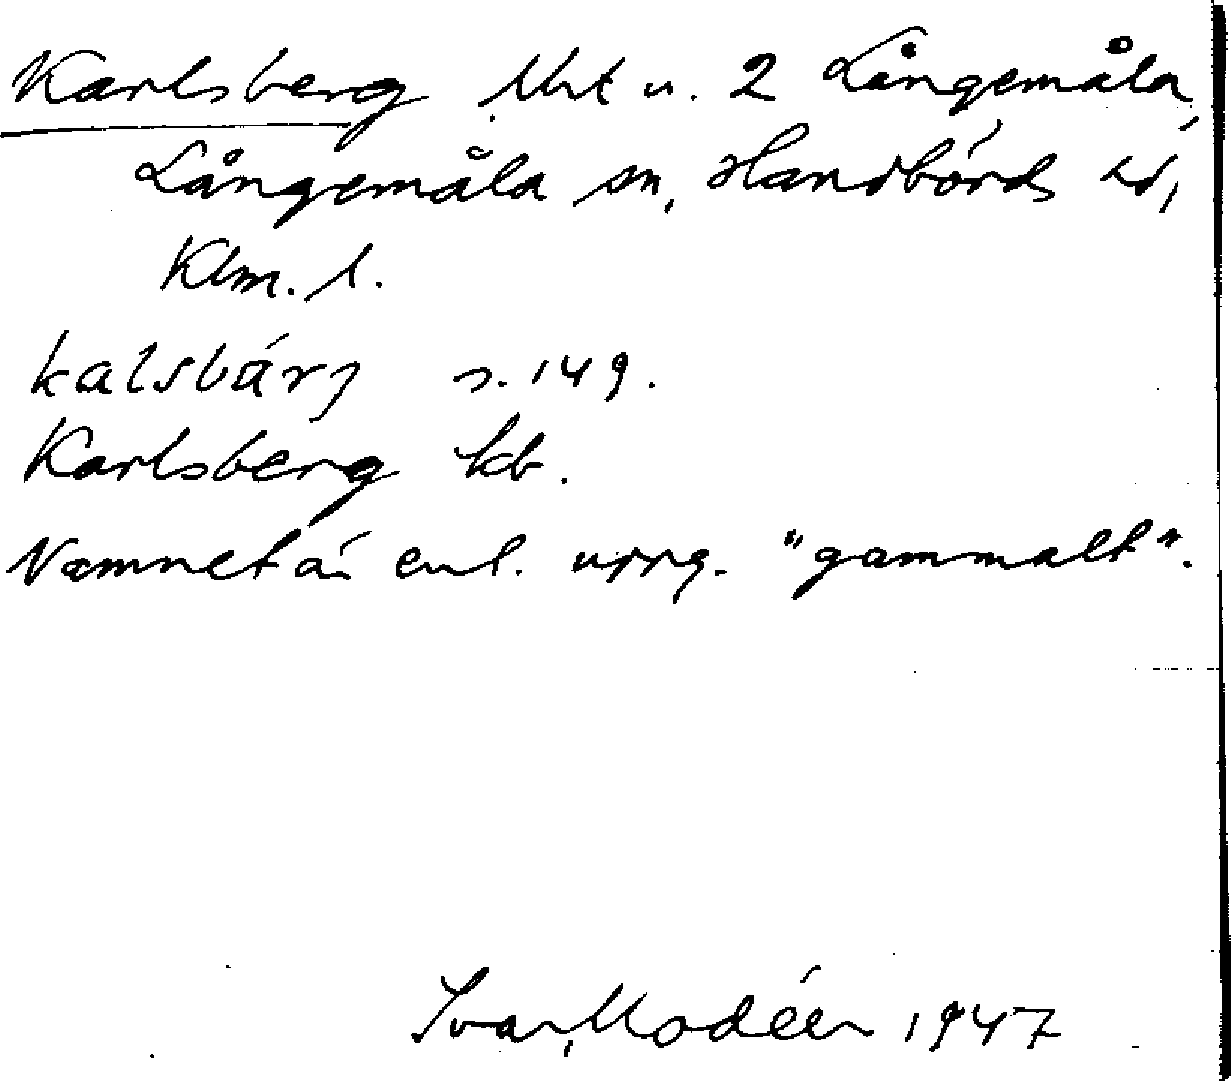 Karlsberg lht u. 2 Långemåla,
Långemåla sn, Handbörds hd,
Klm. l.
kalsbärj s. 149.
Karlsberg kb.
Namnet är enl. uppg. "gammalt".
Ivar Modéer 1947